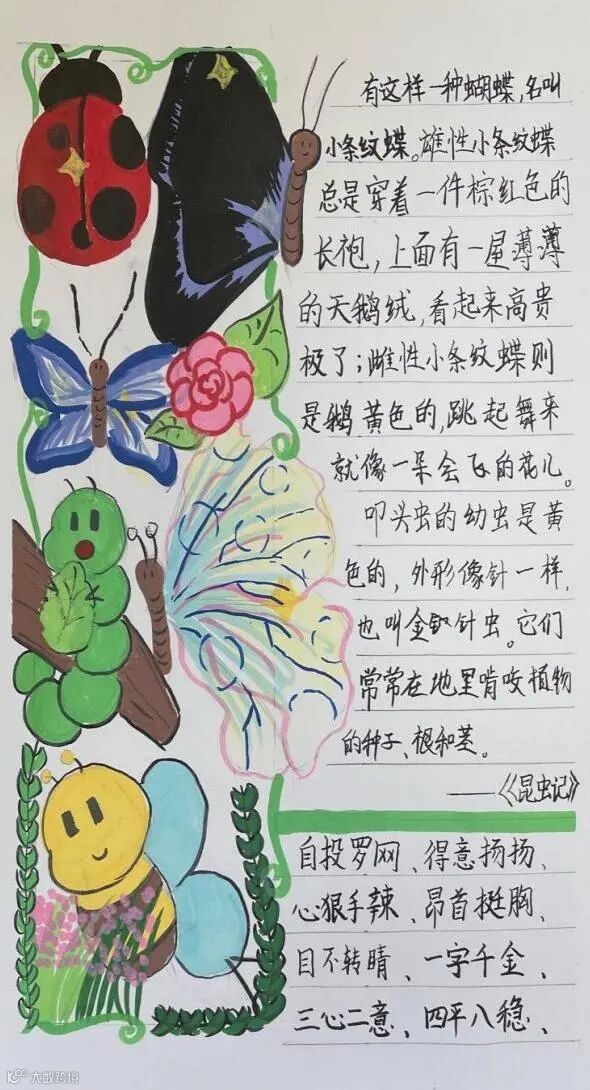 有这样一种蝴蝶,名叫
小条纹蝶。雄性小条纹蝶
总是穿着一件棕红色的
长袍，上面有一层薄薄
的天鹅绒,看起来高贵
极了；雌性小条纹蝶则
是鹅黄色的,跳起舞来
就像一朵会飞的花儿。
叩头虫的幼虫是黄
色的，外形像针一样,
也叫金针虫。它们
常常在地里啃咬植物
的种子、根和茎。
——《昆虫记》
自投罗网、得意扬扬、
心狠手辣、昂首挺胸、
目不转睛、一字千金、
三心二意、四平八稳、
大数跨境